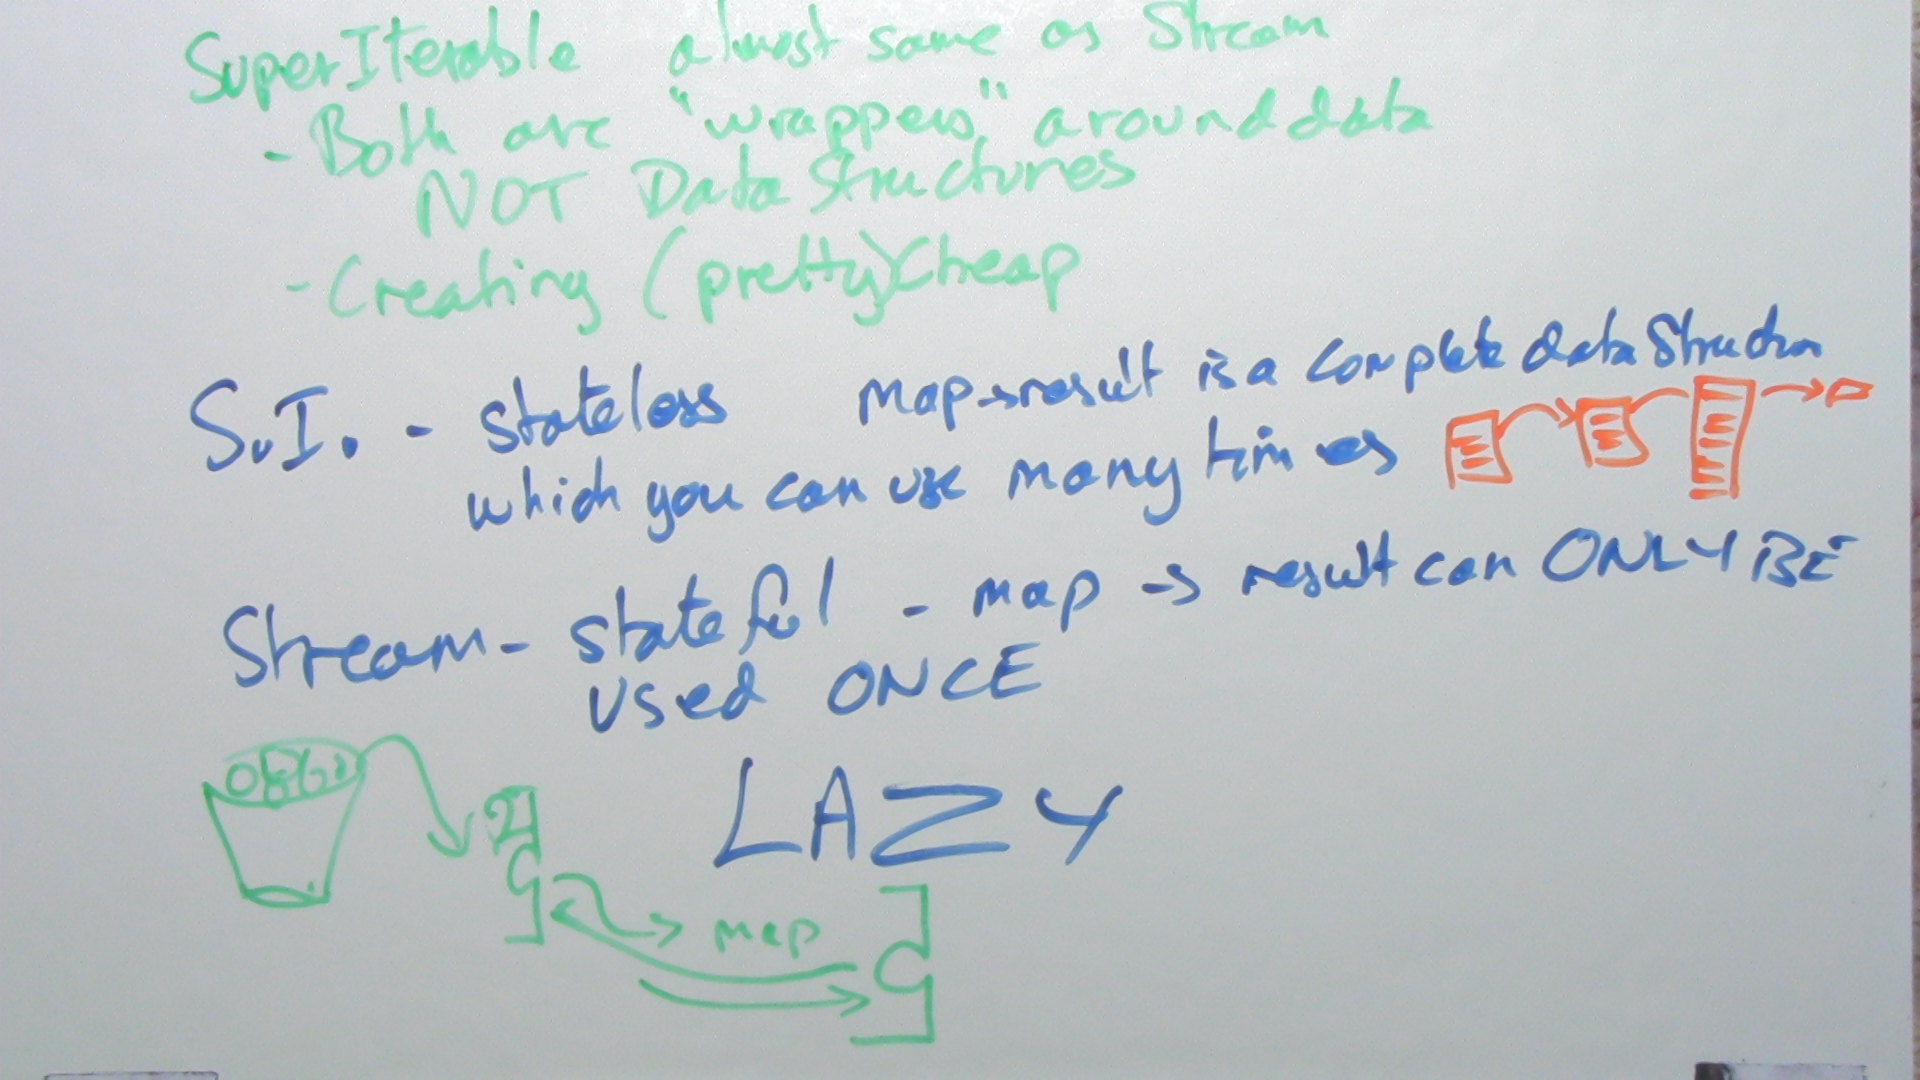 SuperIterable almost same as Stream
- Both are "wrappers" around data
NOT Data Structures
- Creating (pretty) Cheap
S.I. - stateless map→result is a complete data Structure
which you can use many times
Stream - stateful - map → result can ONLY BE
used ONCE
LAZY
map